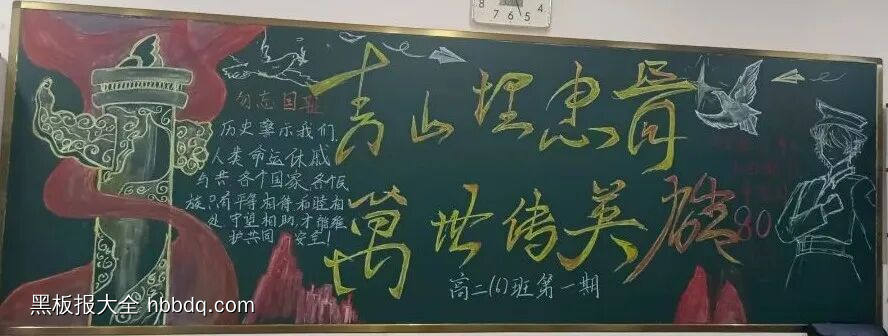 勿忘国耻
历史警示我们,
人类命运休戚
与共 各个国家、各个民
族只有平等相待和睦相
处 守望相助,才能维
护共同 安全!
青山埋忠骨
萬世传英魂
高二(6)班第一期
80
8 7 6 5 4
黑板报大全 hbbdq.com